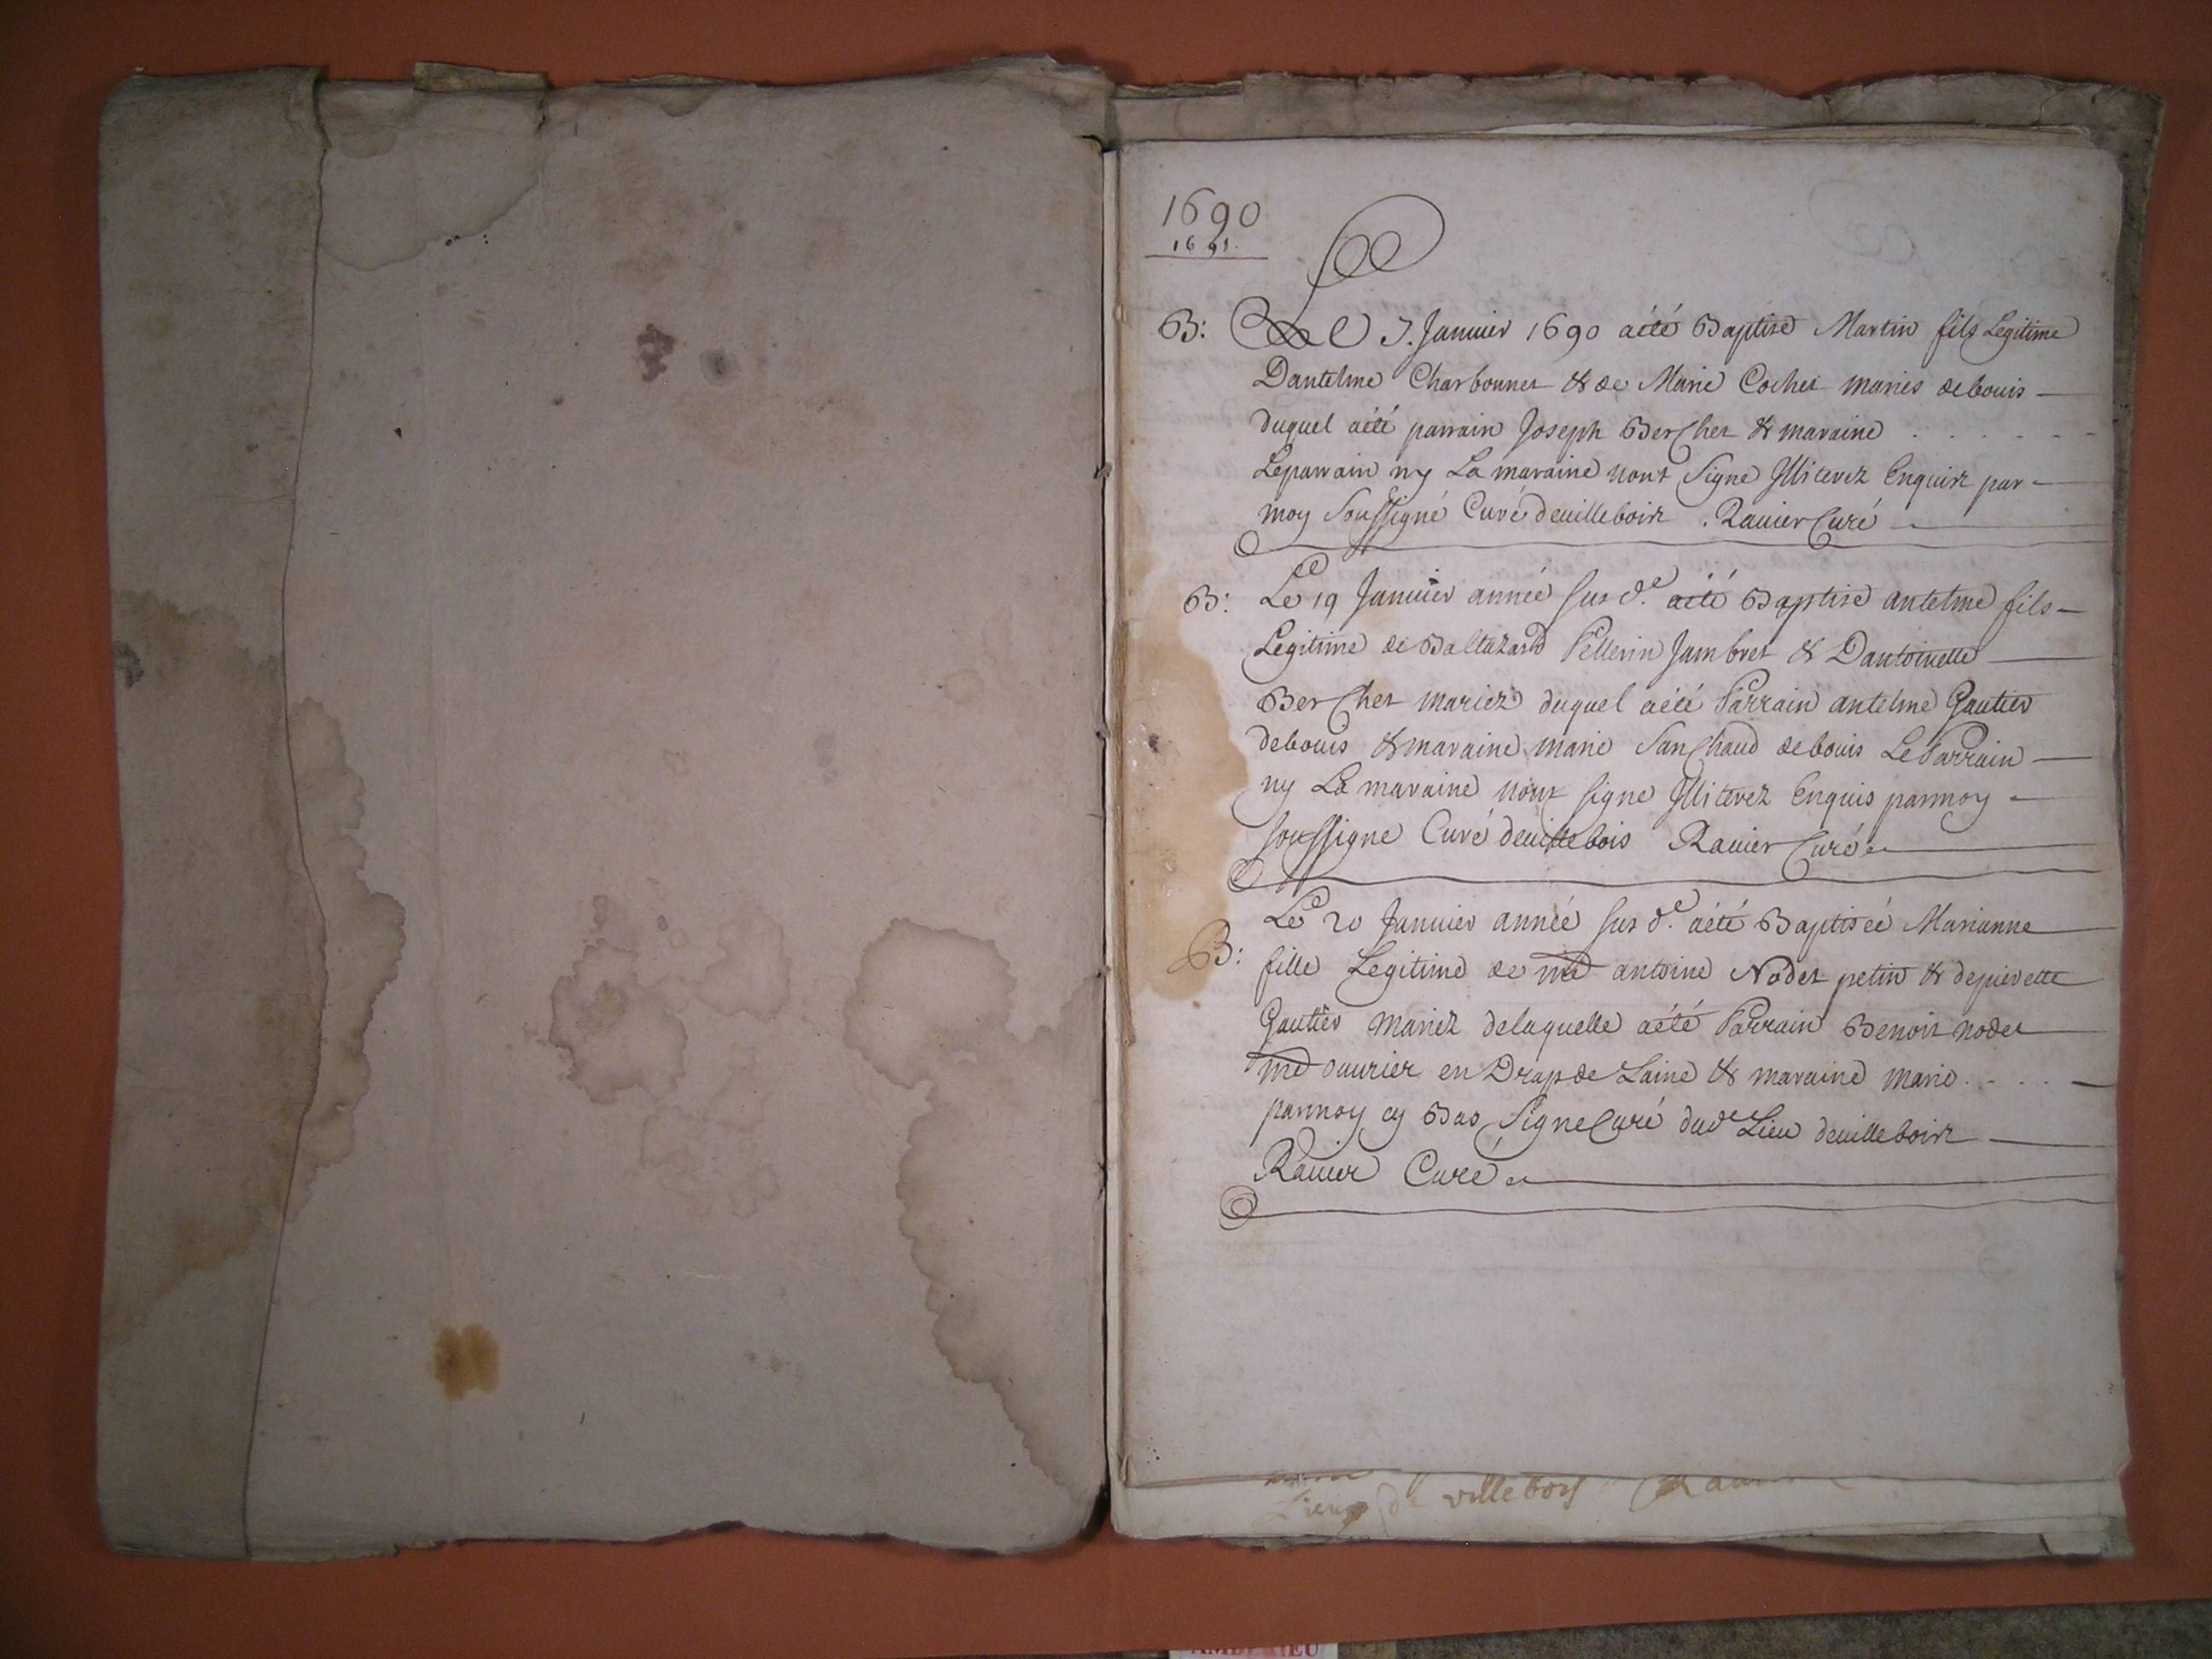 1690
1691.
B: Le 7. Januier 1690 aété Baptisé Martin fils Legitime
Dantelme Charbonnet & de Marie Cochet maries debouis
duquel aété parrain Joseph BerChet & maraine . . . . . .
Leparrain ny La maraine nont Signe Illiterez Enquiz par
moy Soussigné Curé deuilleboiz . Rauier Curé
B: Le 19 Januier année sus d.e aété Baptisé antelme fils
Legitime de Baltazard Pellerin Jambret & Dantoinette
BerChet mariez duquel aété Parrain antelme Gautier
debouis & maraine marie SanChaud debouis Le Parrain
ny La maraine nont signe Illiterez Enquis parmoy
soussigne Curé deuillebois Rauier Curé
B: Le 20 Januier année sus d.e aété Baptiséé Marianne
fille Legitime de me antoine Nodet petin & depierette
Gautier mariez delaquelle aété Parrain Benoit nodet
me ouurier en Drap de Laine & maraine marie . . . .
parmoy cy Bas Signe Curé dud Lieu deuilleboiz
Rauier Curé
Lieu de villeboys